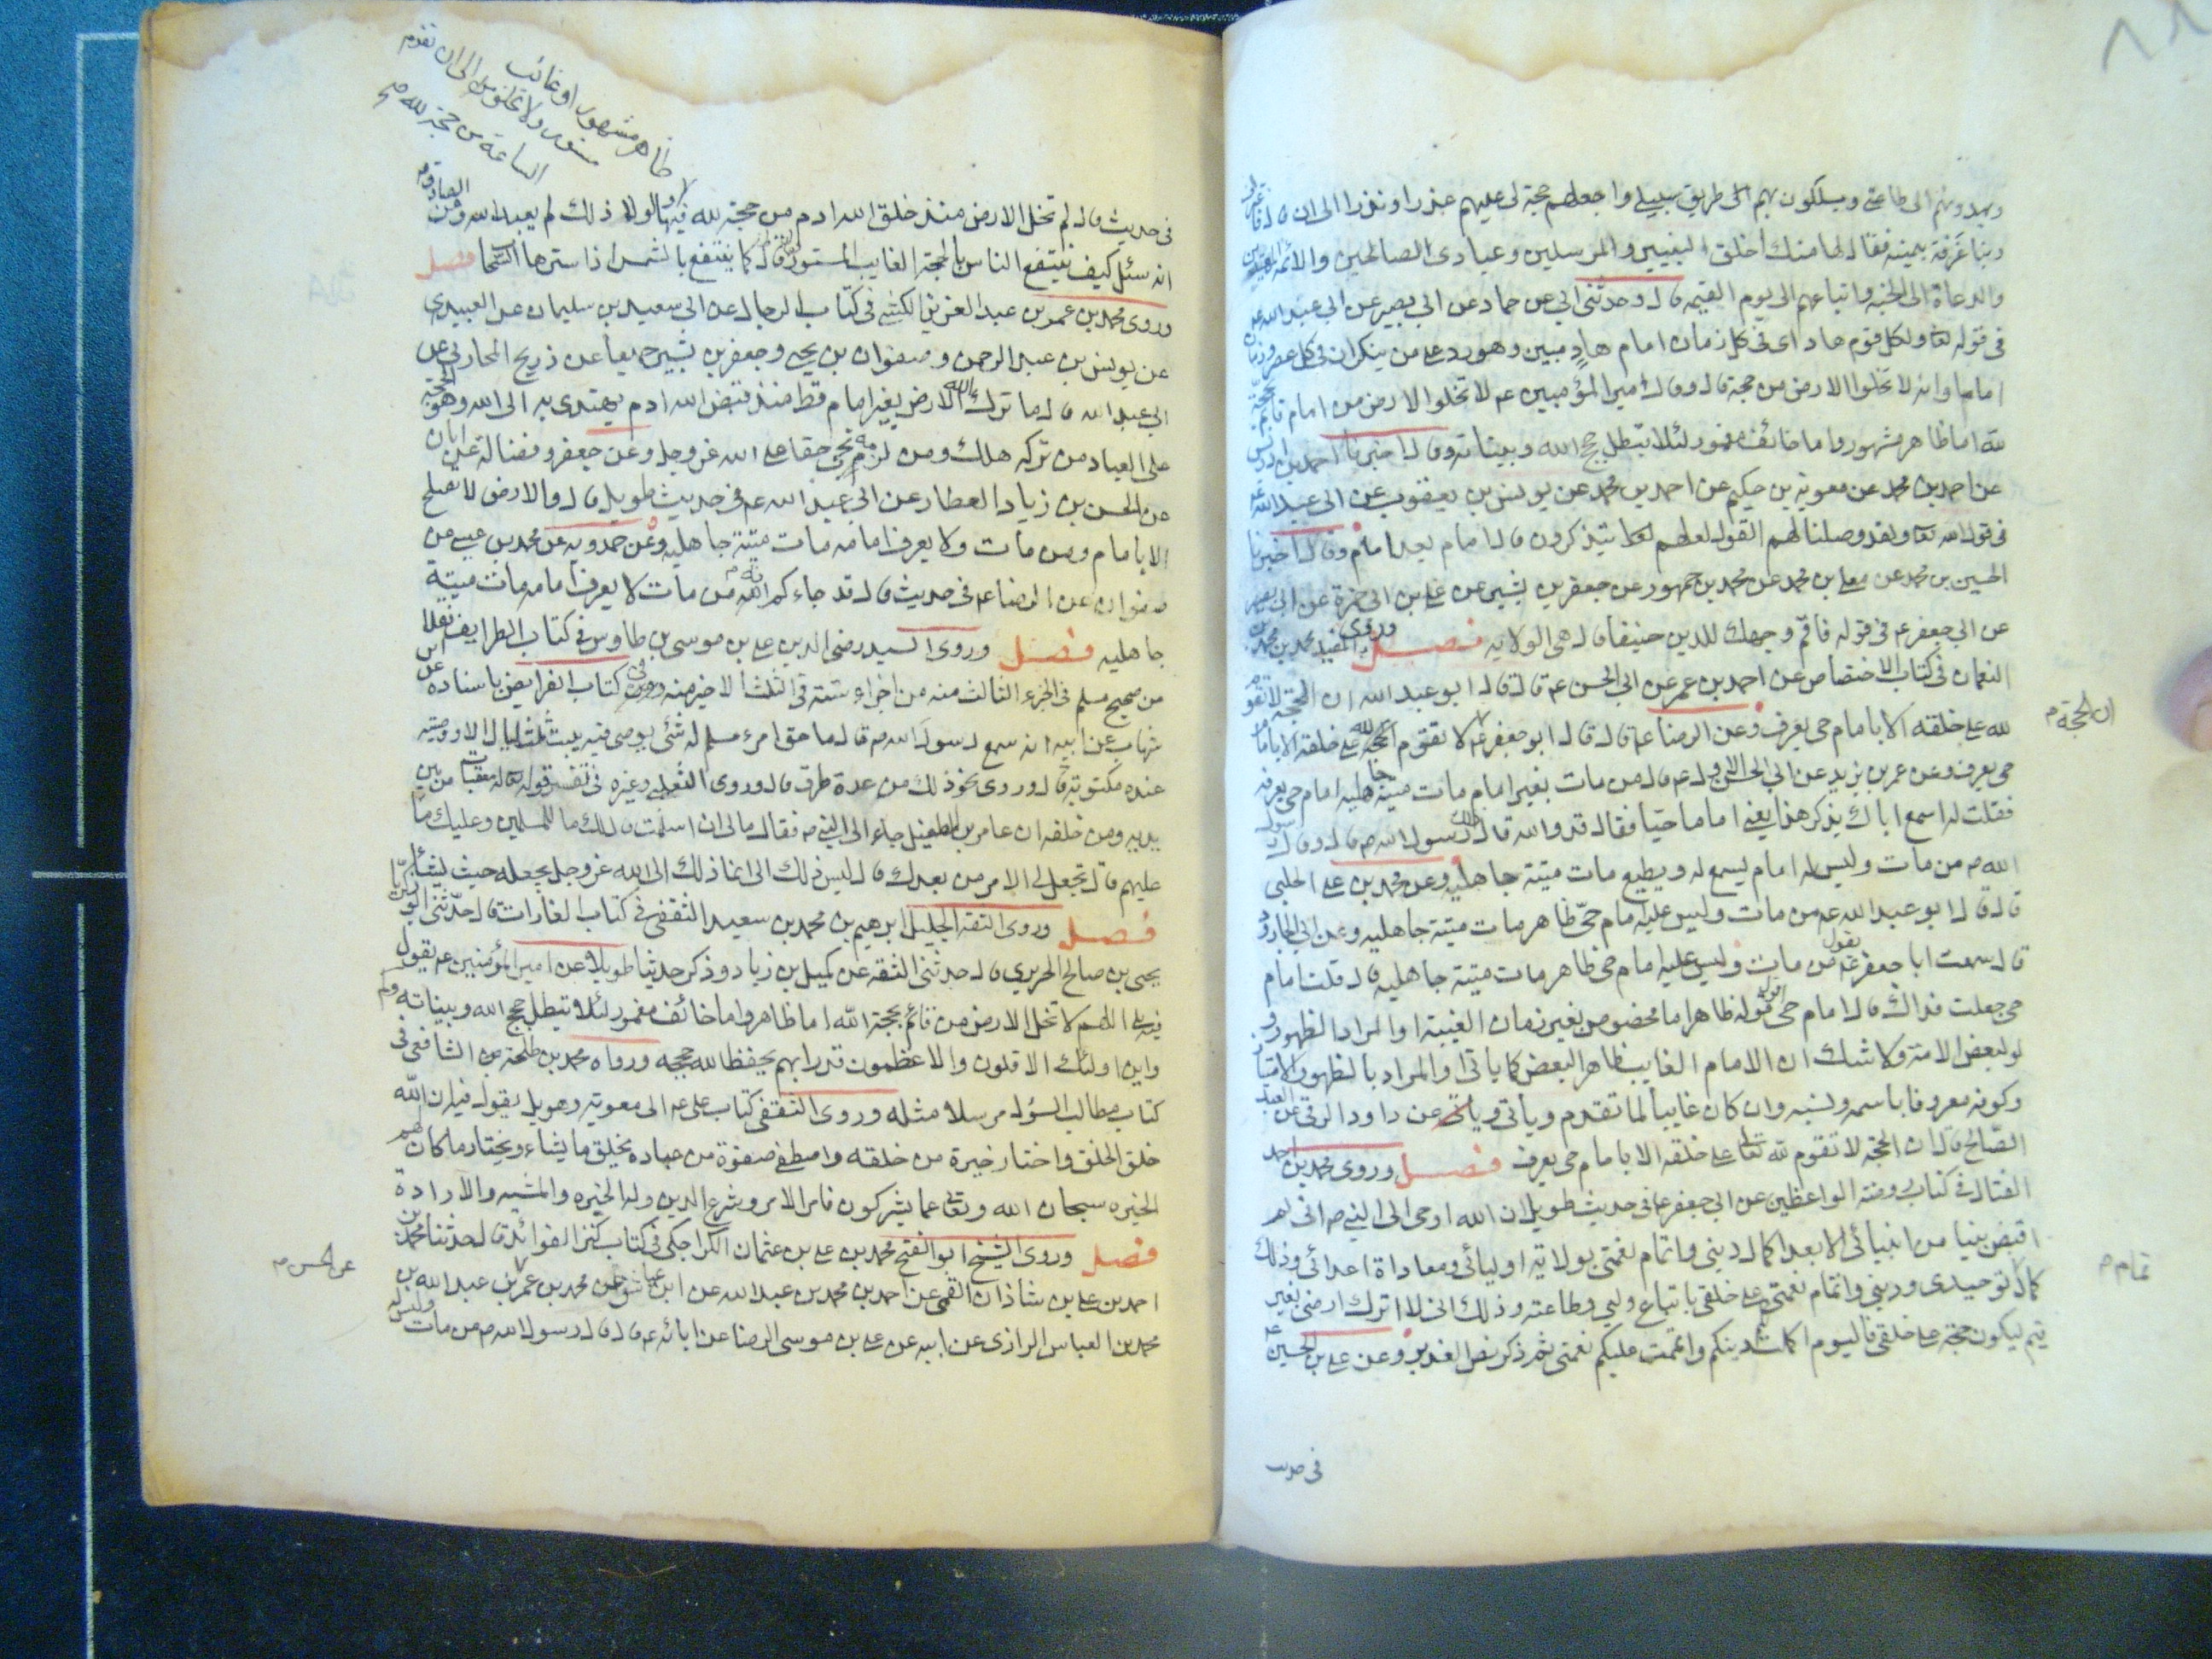 ويهدونهم الى طاعتى ويسلكون بهم الى طريق سبيلى واجعلهم حجة لى عليهم عذرا او نذرا الى ان قال
ربنا غرفة بيمينه فقال لها منك اخلق النبيين والمرسلين وعبادى الصالحين والائمة المهديين
والدعاة الى الجنة واتباعهم الى يوم القيمة قال وحدثنى ابى عن حماد عن ابى بصير عن ابى عبد الله ع
فى قوله تعا ولكل قوم هاد اى فى كل زمان امام هاد مبين وهو رد على من ينكر ان فى كل عصر وزمان
اماما وانه لا تخلوا الارض من حجة قال وقال امير المؤمنين ع لا تخلوا الارض من امام قايم بحجة
لله اما ظاهر مشهور واما خائف مغمور لئلا يبطل حجج الله وبيناته وقال اخبرنا احمد بن ادريس
عن احمد بن محمد عن معوية بن حكيم عن احمد بن محمد عن يونس بن يعقوب عن ابى عبد الله ع
فى قول الله تعا ولقد وصلنا لهم القول لعلهم يتذكرون قال امام بعد امام وقال اخبرنا
الحسين بن محمد عن معلى بن محمد عن محمد بن جمهور عن جعفر بن بشير عن على بن ابى حمزة عن ابى بصير
عن ابى جعفر ع فى قوله فاقم وجهك للدين حنيفا قال هى الولايه فصل وروى المفيد محمد بن محمد بن
النعمان فى كتاب الاختصاص عن احمد بن عمر عن ابى الحسن ع قال قال ابو عبد الله ان الحجة لا تقوم
لله على خلقه الا بامام حى يعرف وعن الرضا ع قال قال ابو جعفر ع لا تقوم الحجة لله على خلقه الا بامام
ان الحجة م
حى يعرف وعن عمر بن يزيد عن ابى الحسن الاول ع قال من مات بغير امام مات ميتة جاهليه امام حى يعرفه
فقلت لم اسمع اباك يذكر هذا يعنى اماما حيا فقال قد والله قال ذلك رسول الله ص قال وقال رسول
الله ص من مات وليس له امام يسمع له ويطيع مات ميتة جاهليه وعن محمد بن على الحلبى
قال قال ابو عبد الله ع من مات وليس عليه امام حىّ ظاهر مات ميتة جاهليه وعن ابى الجارود
قال سمعت ابا جعفر ع يقول من مات وليس عليه امام حى ظاهر مات ميتة جاهليه قال قلت امام
حى جعلت فداك قال امام حى اقول قوله ظاهر اما مخصوص بغير زمان الغيبة او المراد الظهور و
لو لبعض الامة ولا شك ان الامام الغايب ظاهر لبعض كما ياتى او المراد بالظهور الامتياز
وكونه معروفا باسمه ونسبه وان كان غايبا لما تقدم وياتى وعن داود الرقى عن العبد
الصّالح قال ان الحجة لا تقوم لله تعا على خلقه الا بامام حى يعرف فصل وروى محمد بن احمد
الفتال فى كتاب روضة الواعظين عن ابى جعفر ع فى حديث طويل ان الله اوحى الى النبى ص انى لم
اقبض نبيا من انبيائى الا بعد اكمال دينى واتمام نعمتى بولاية اوليائى ومعاداة اعدائى وذلك
تمام م
كمال توحيدى ودينى واتمام نعمتى على خلقى باتباع وليى وطاعته وذلك انى لا اترك ارضى بغير
قيم ليكون حجة على خلقى فاليوم اكملت لكم دينكم واتممت عليكم نعمتى ثم ذكر نص الغدير وعن على بن الحسين ع
فى حديث
ظاهر مشهور او غائب
مستور ولا تخلو الى ان تقوم
الساعة من حجة لله م
فى حديث قال لم تخل الارض منذ خلق الله ادم من حجة لله فيها ولولا ذلك لم يعبد الله وعن الصادق ع
انه سئل كيف ينتفع الناس بالحجة الغايب المستور قال كما ينتفع بالشمس اذا سترها السحاب فصل
وروى محمد بن عمر بن عبد العزيز الكشى فى كتاب الرجال عن ابى سعيد بن سليمان عن العبيدى
عن يونس بن عبد الرحمن وصفوان بن يحيى وجعفر بن بشير جميعا عن ذريح المحاربى عن
ابى عبد الله قال ما ترك الله الارض بغير امام قط منذ قبض الله ادم يهتدى به الى الله وهو الحجة
على العباد من تركه هلك ومن لزمه نجى حقا على الله عز وجل وعن جعفر وفضالة عن ابان
عن الحسن بن زياد العطار عن ابى عبد الله ع فى حديث طويل قال والارض لا تصلح
الا بامام ومن مات ولا يعرف امامه مات ميتة جاهليه وعن حمدويه عن محمد بن عيسى عن
صفوان عن الرضا ع فى حديث قال قد جاءكم انه من مات لا يعرف امامه مات ميتة
جاهليه فصل وروى السيد رضى الدين على بن موسى بن طاوس فى كتاب الطرايف نقلا
من صحيح مسلم فى الجزء الثالث منه من اجزاء ستة فى الثلث الاخير منه ومن كتاب الفرايض باسناده عن ابن
شهاب عن ابيه انه سمع رسول الله ص قال ما حق امرء مسلم له شئ يوصى فيه يبيت ثلث ليال الا ووصيته
عنده مكتوبة قال وروى نحو ذلك من عدة طرق قال وروى الثعلبى وغيره فى تفسير قوله تعا له معقبات من بين
يديه ومن خلفه ان عامر بن الطفيل جاء الى النبى ص فقال مالى ان اسلمت قال لك ما للمسلمين وعليك ما
عليهم قال تجعل لى الامر من بعدك قال ليس ذلك الى انما ذلك الى الله عز وجل يجعله حيث يشأ
فصل وروى الثقة الجليل ابرهيم بن محمد بن سعيد الثقفى فى كتاب الغارات قال حدّثنى ابو زكريّا
يحيى بن صالح الحريرى قال حدثنى الثقة عن كميل بن زياد وذكر حديثا طويلا عن امير المؤمنين ع يقول
فيه بلى اللهم لا تخل الارض من قائم بحجة الله اما ظاهر واما خائف مغمور لئلا تبطل حجج الله وبيناته وكم
واين اولئك الاقلون والاعظمون قدرا بهم يحفظ الله حججه ورواه محمد بن طلحة من الشافعى فى
كتاب مطالب السؤل مرسلا مثله وروى الثقفى كتاب على ع الى معوية وهو يل يقول فيه ان الله
خلق الخلق واختار خيرة من خلقه واصطفى صفوة من عباده يخلق ما يشاء ويختار ما كان لهم
الخيره سبحان الله وتعالى عما يشركون فامر الامر وشرع الدين وله الخيره والمشيه والارادة
فصل وروى الشيخ ابو الفتح محمد بن على بن عثمان الكراجكى فى كتاب كنز الفوائد قال حدثنا محمد بن
احمد بن على بن شاذان القمى عن احمد بن محمد بن عبد الله عن ابن عياش عن محمد بن عمر بن عبد الله بن
عن الحسن م
محمد بن العباس الرازى عن ابيه عن على بن موسى الرضا عن ابائه ع قال قال رسول الله ص من مات وليس له